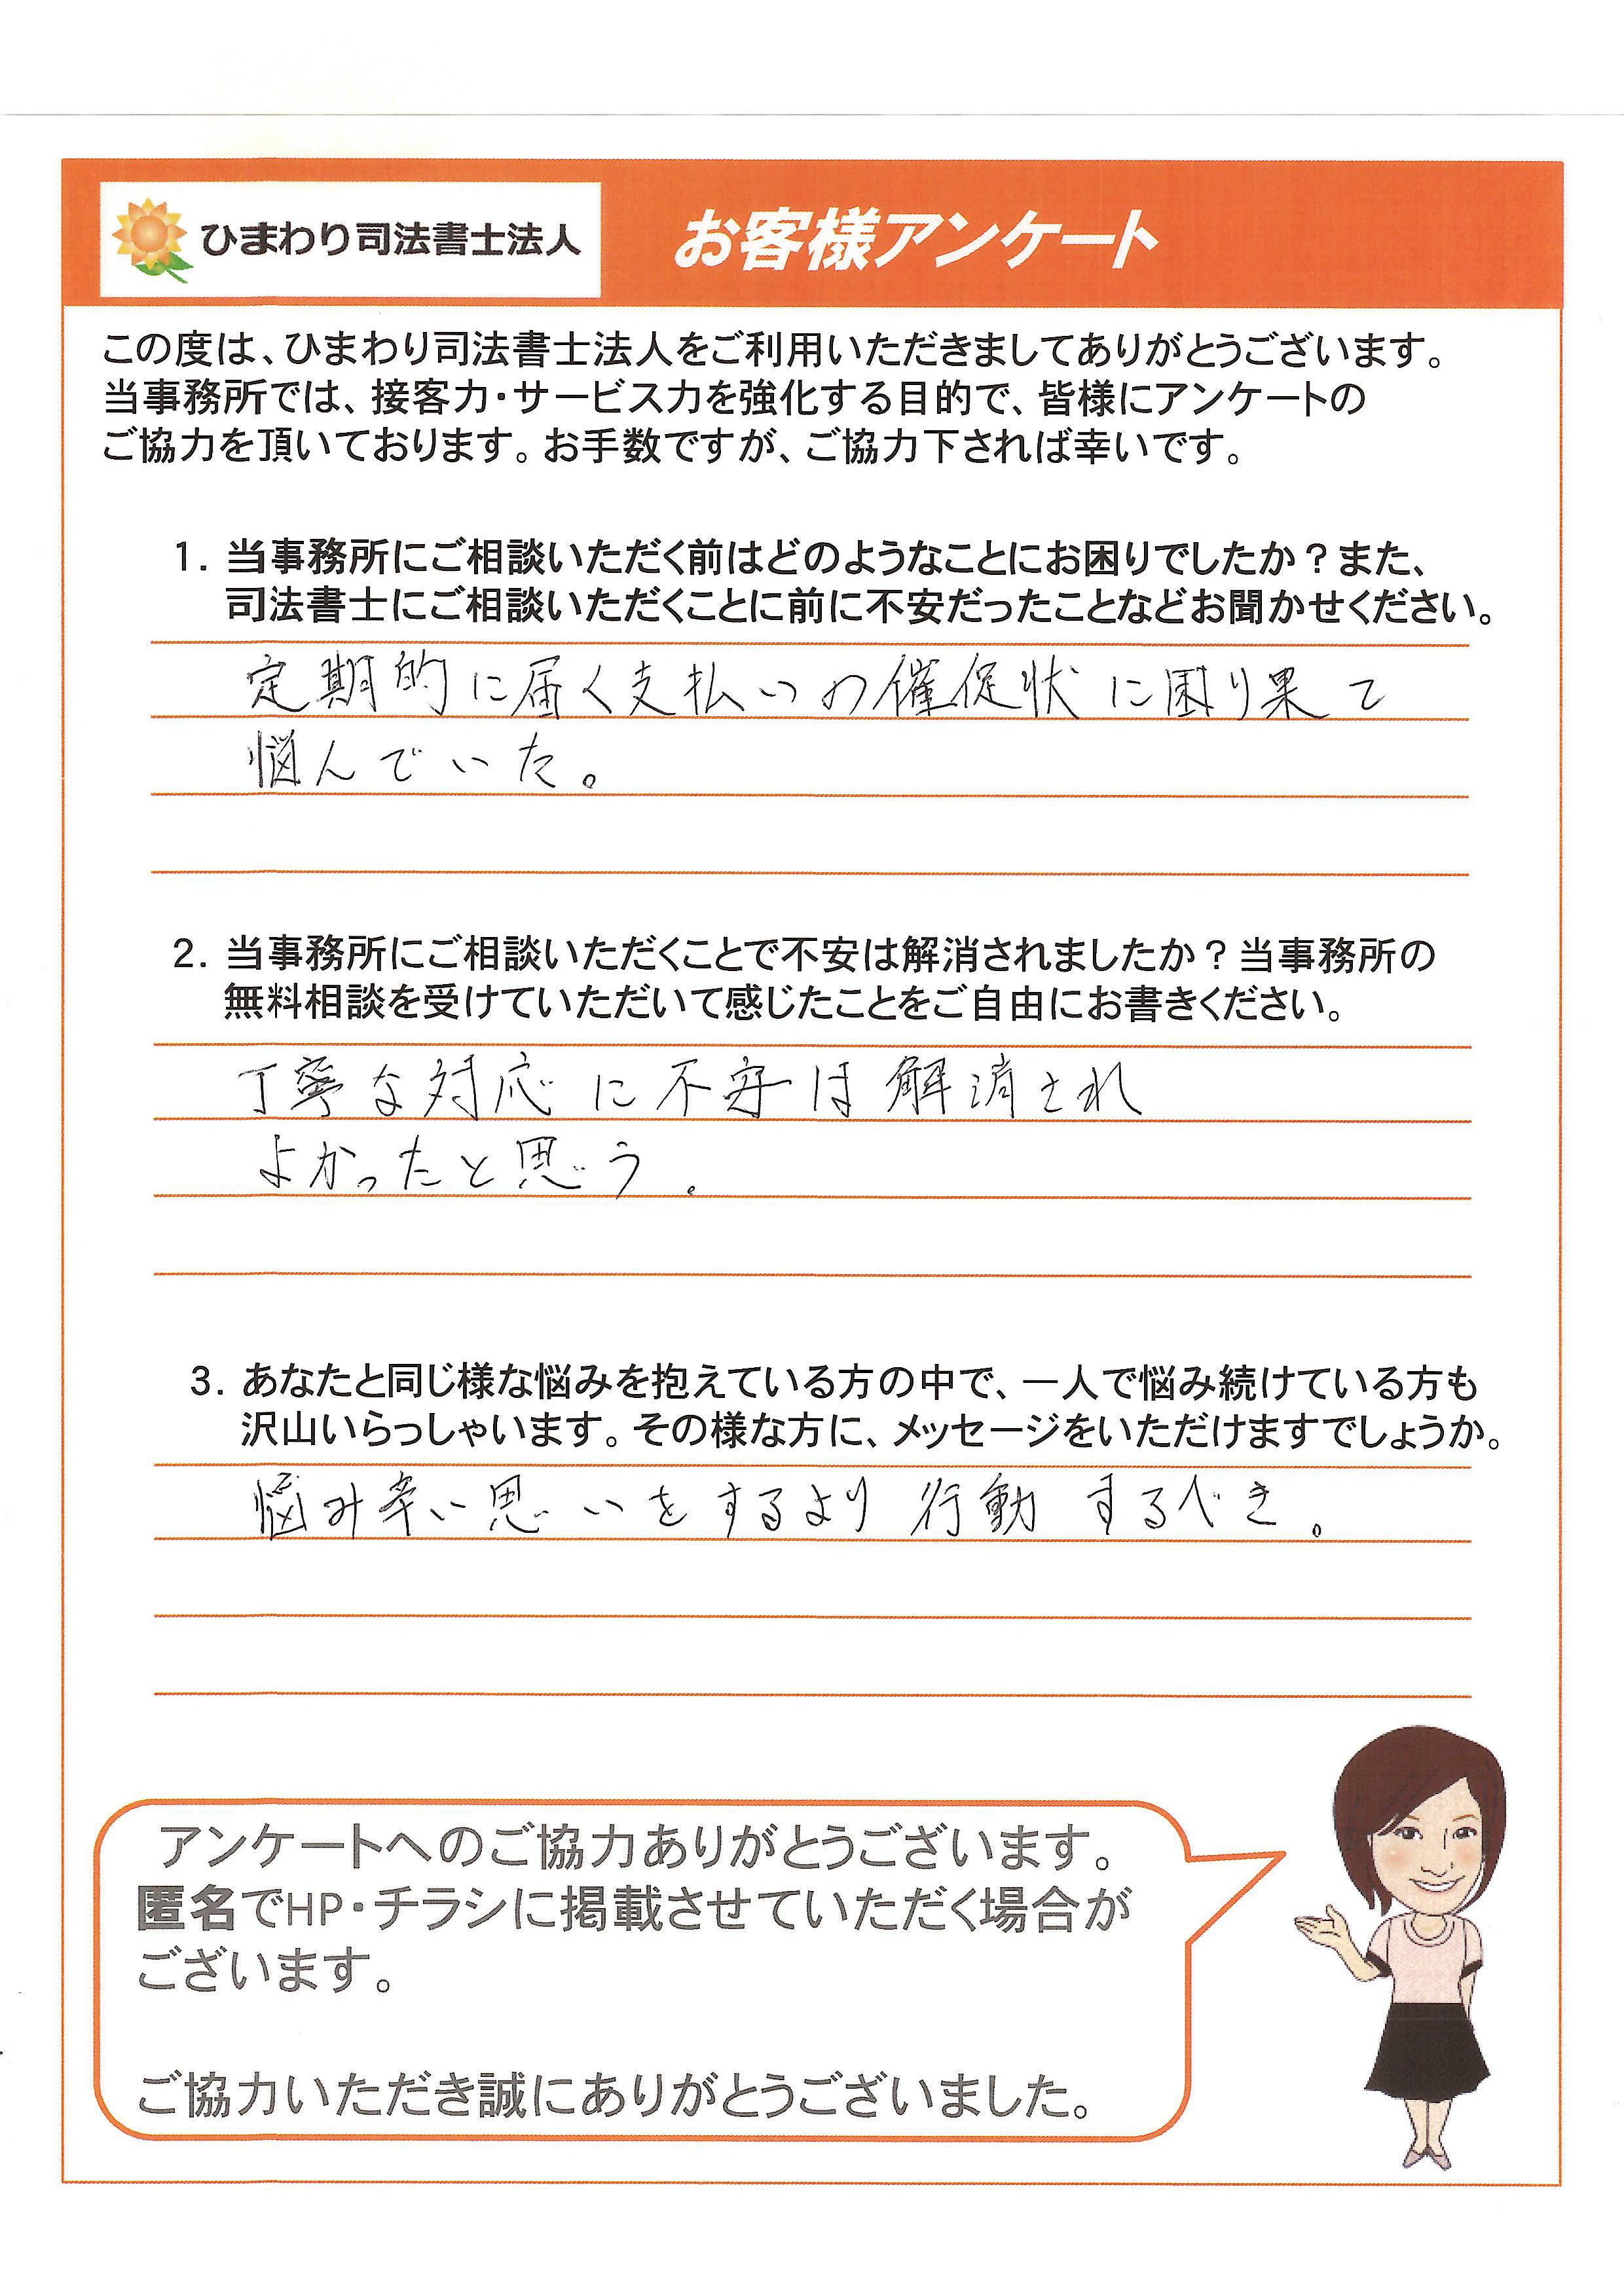 ひまわり司法書士法人
お客様アンケート
この度は、ひまわり司法書士法人をご利用いただきましてありがとうございます。
当事務所では、接客力・サービス力を強化する目的で、皆様にアンケートの
ご協力を頂いております。お手数ですが、ご協力下されば幸いです。
1. 当事務所にご相談いただく前はどのようなことにお困りでしたか？また、
司法書士にご相談いただくことに前に不安だったことなどお聞かせください。
定期的に届く支払いの催促状に困り果て
悩んでいた。
2. 当事務所にご相談いただくことで不安は解消されましたか？当事務所の
無料相談を受けていただいて感じたことをご自由にお書きください。
丁寧な対応に不安は解消され
よかったと思う。
3. あなたと同じ様な悩みを抱えている方の中で、一人で悩み続けている方も
沢山いらっしゃいます。その様な方に、メッセージをいただけますでしょうか。
悩み辛い思いをするより行動するべき。
アンケートへのご協力ありがとうございます。
匿名でHP・チラシに掲載させていただく場合が
ございます。
ご協力いただき誠にありがとうございました。